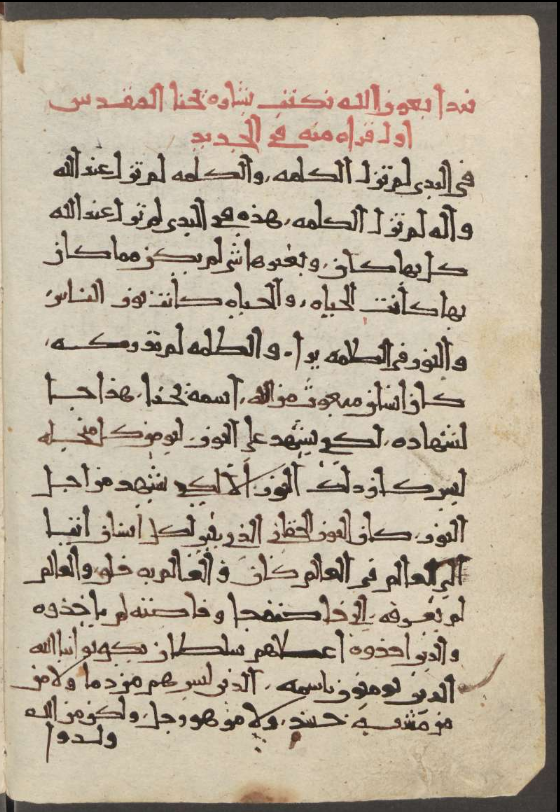 نبدا بعون الله نكتب بشاره يحنا المقدس
اول قراه منه في الجديد
في البدي لم تزل الكلمه، والكلمه لم تزل عند الله
واله لم تزل الكلمه، هذه في البدي لم تزل عند الله
كل بها كان، وبغيرها شي لم يكن مما كان
بها كانت الحياه، والحياه كانت نور الناس،
والنور في الظلمه يرا، والظلمه لم تدركه،
كان انسان مبعوث من الله، اسمه يحنا، هذا جا
لشهاده، لكي يشهد علي النور، ليومن كل من
ليس كان ذلك النور، الا لكي يشهد من اجل
النور، كان النور الحقاني الذي ينير لكل انسان
الي العالم في العالم كان والعالم به خلق، والعالم
لم يعرفه، الي وخاصته لم ياخذوه
والذين اخذوه اعطاهم سلطان يكونوا ابنا الله
الذين يومنون باسمه، الذين ليس هم من دم ولا من
من مشيه ولا من هوي رجل، ولكن من الله
ولدوا